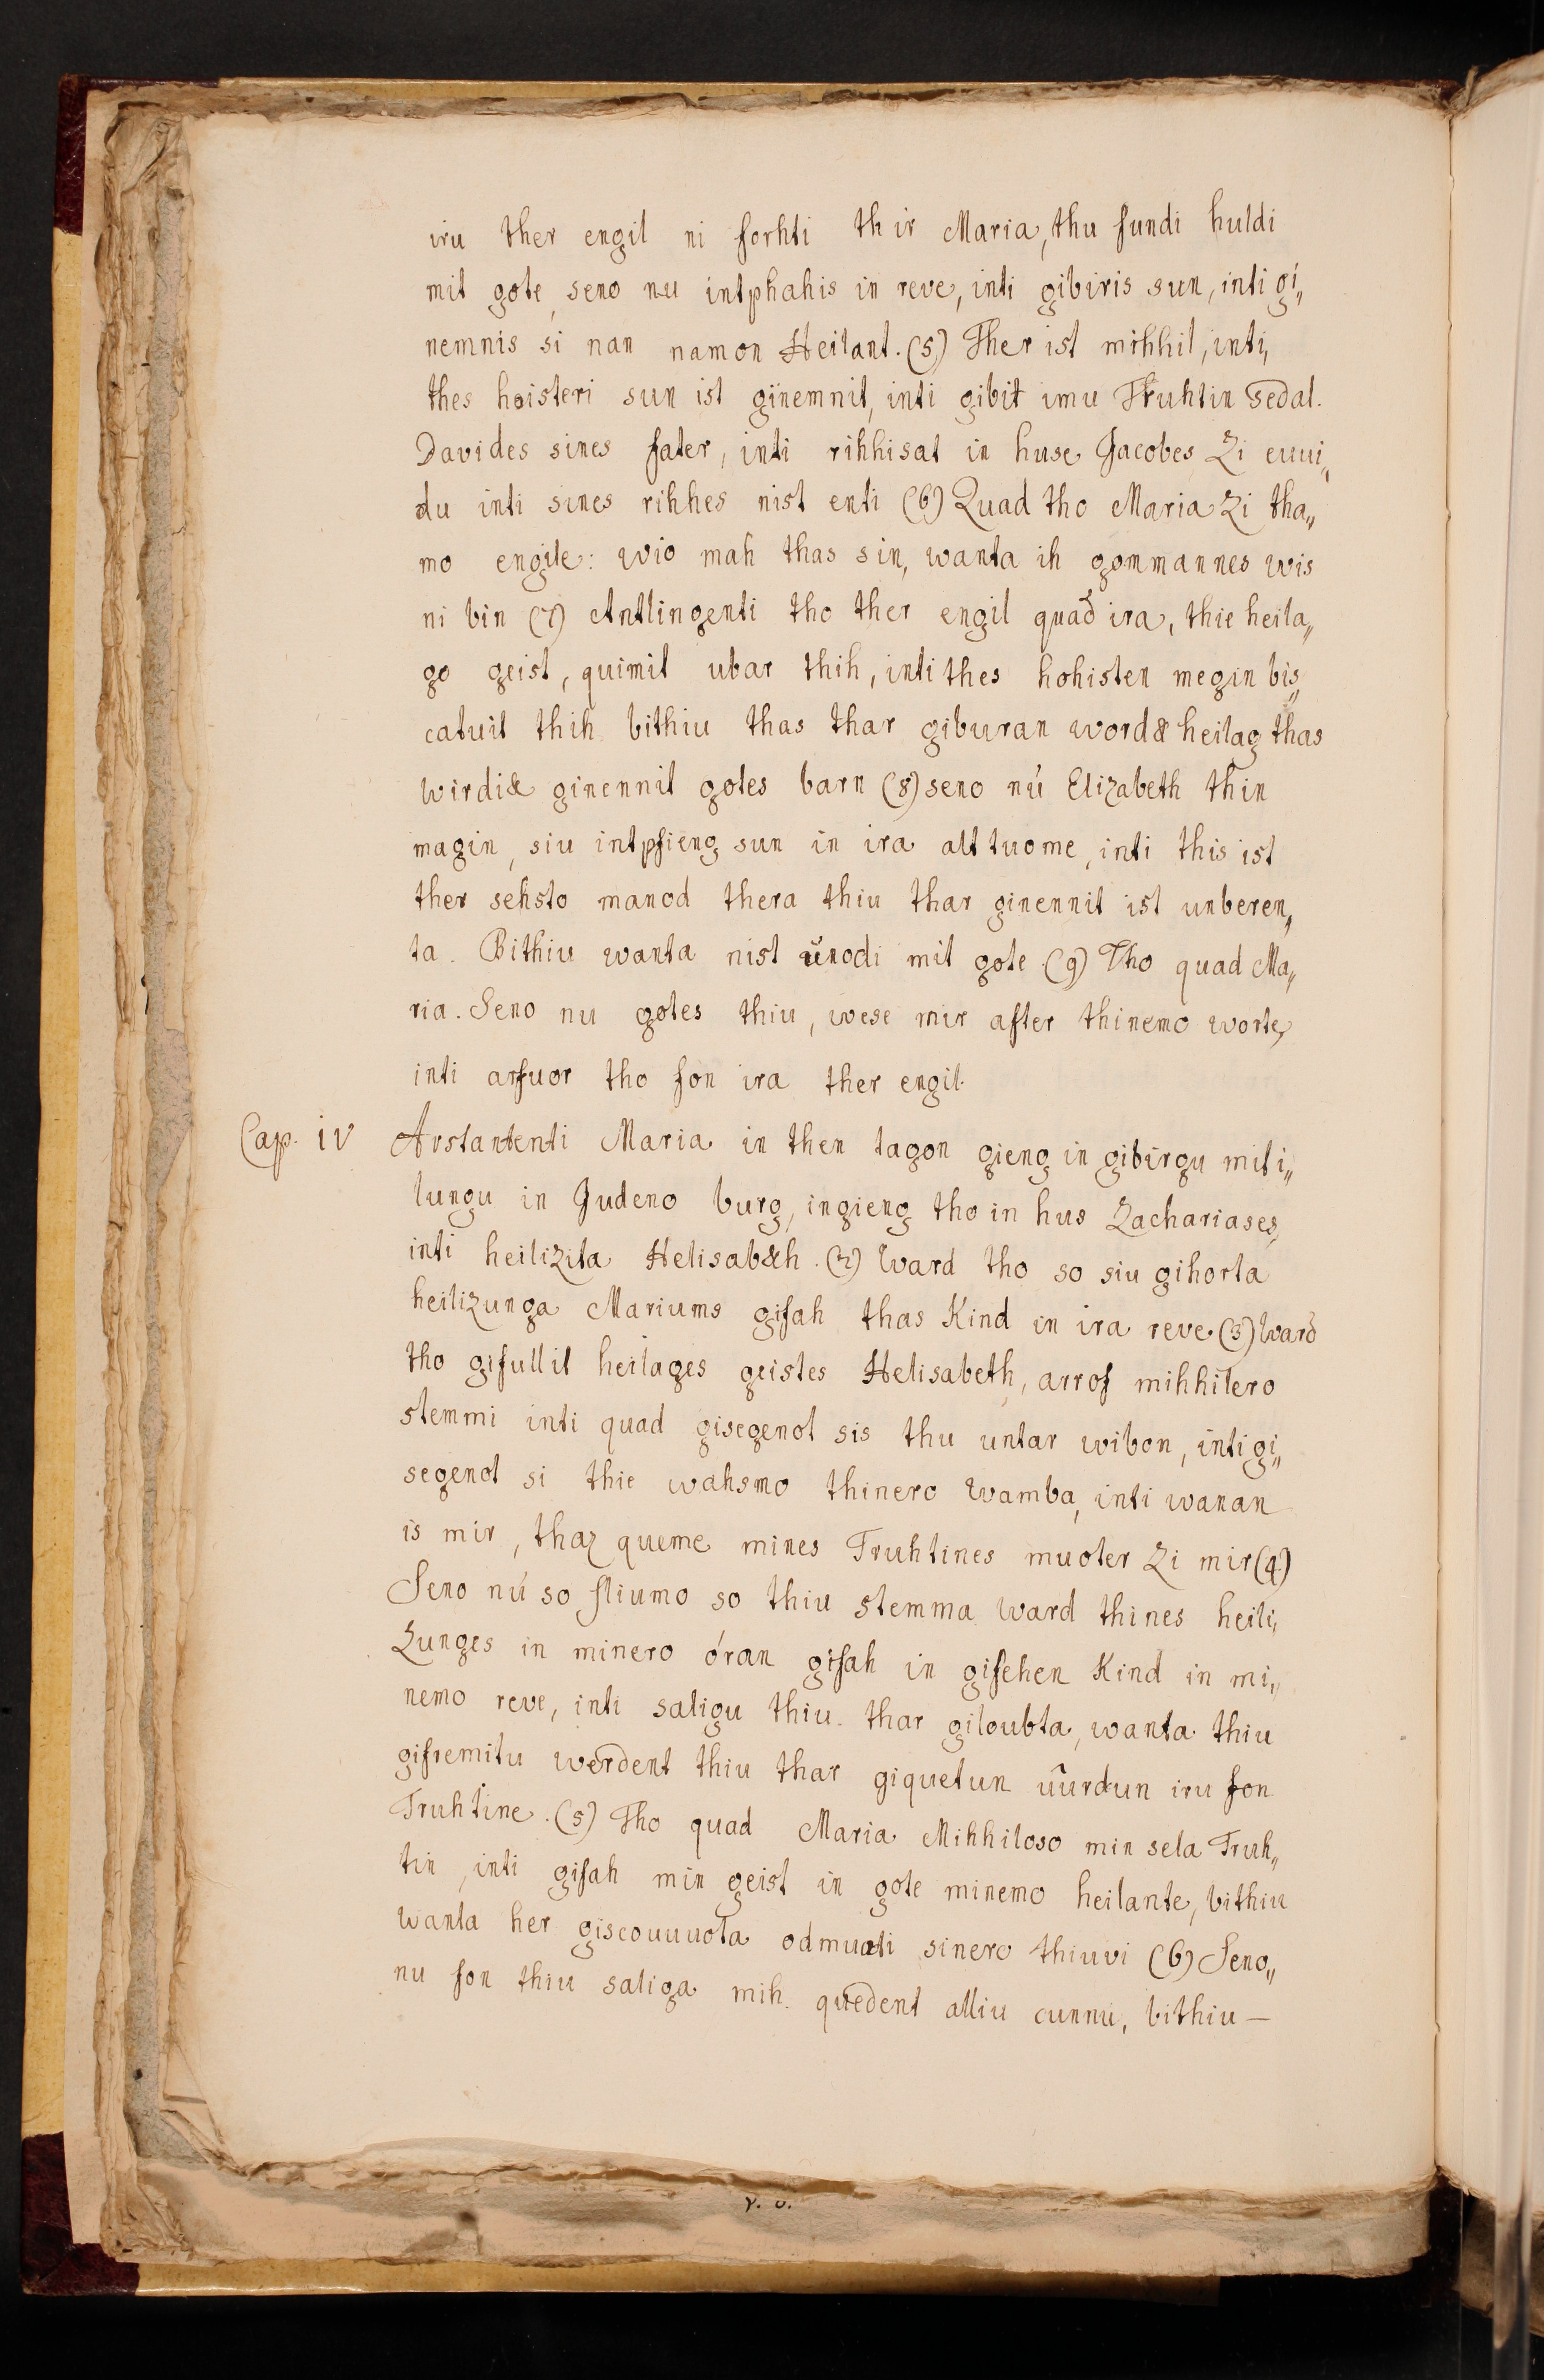 iru ther engil ni forhti thir Maria, thu fundi huldi
mit gote, seno nu intphahis in reve, inti gibiris sun, inti gi„
nemnis si nan namon Heilant. (5) Ther ist mihhil, inti,
thes hoisteri sun ist ginemnit, inti gibit imu Truhtin sedal.
Davides sines fater, inti rihhisat in huse Jacobes zi euui„
du inti sines rihhes nist enti (6) Quad tho Maria zi tha„
mo engile: wio mah thas sin, wanta ih gommannes wis
ni bin (7) Antlingenti tho ther engil quad ira, thie heila„
go geist, quimit ubar thih, inti thes hohisten megin bis„
catuit thih bithiu thas thar giburan word& heilag thas
wirdi& ginennit gotes barn (8) seno nú Elizabeth thin
magin, siu intpfieng sun in ira alttuome, inti this ist
ther sehsto manod thera thiu thar ginennit ist unberen„
ta. Bithiu wanta nist ŭnodi mit gote (9) Tho quad Ma„
ria. Seno nu gotes thiu, wese mir after thinemo worte,
inti arfuor tho fon ira ther engil.
Cap. iv Arstantenti Maria in then tagon gieng in gibirgu miti„
lungu in Judeno burg, ingieng tho in hus Zachariases,
inti heilizita Helisab&h. (2) Ward tho so siu gihorta
heilizunga Mariums gifah thas Kind in ira reve (3) Ward
tho gifullit heilages geistes Helisabeth, arrof mihhilero
stemmi inti quad gisegenot sis thu untar wibon, inti gi„
segenot si thie wahsmo thinero Wamba, inti wanan
is mir, thaz queme mines Truhtines muoter zi mir (4)
Seno nú so sliumo so thiu stemma Ward thines heili„
zunges in minero óran gifah in gifehen Kind in mi„
nemo reve, inti saligu thiu. thar giloubta, wanta thiu
gifremitu werdent thiu thar giquetun ûurdun iru fon
Truhtine. (5) Tho quad Maria Mihhiloso min sela Truh„
tin, inti gifah min geist in gote minemo heilante, bithiu
wanta her giscouuuota odmuati sinero thiuvi (6) Seno„
nu fon thiu saliga mih. quedent alliu cunnu, bithiu —